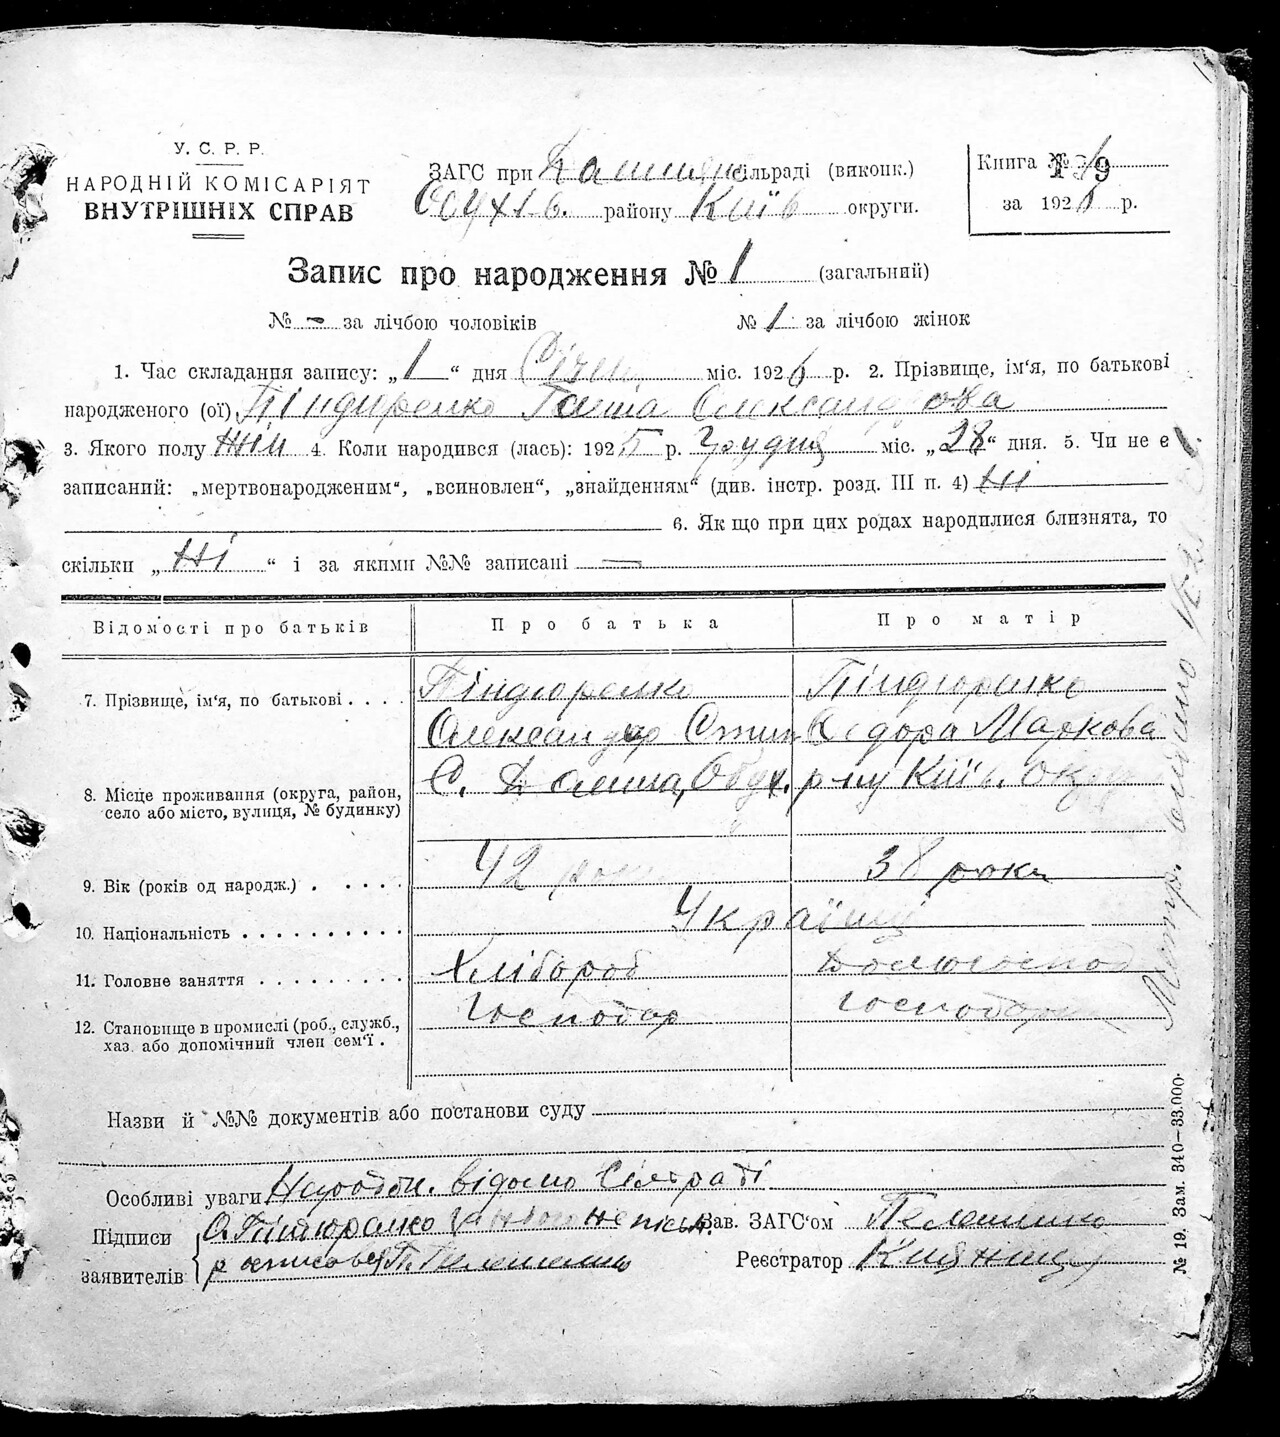 У. С. Р. Р.
НАРОДНІЙ КОМІСАРІЯТ
ВНУТРІШНІХ СПРАВ
ЗАГС при сільраді (виконк.)
Обухів. району Київ округи.
Книга №
за 1926 р.
Запис про народження № 1 (загальний)
№ - за лічбою чоловіків № 1 за лічбою жінок
1. Час складання запису: „1“ дня Січня міс. 1926 р. 2. Прізвище, ім'я, по батькові
народженого (ої) Піндюренко Ганна Олександрова
3. Якого полу жін 4. Коли народився (лась): 1925 р. Грудня міс. „28“ дня. 5. Чи не є
записаний: „мертвонародженим“, „всиновлен“, „знайденням“ (див. інстр. розд. III п. 4) Ні
6. Як що при цих родах народилися близнята, то
скільки „Ні“ і за якими №№ записані —
Відомості про батьків Про батька Про матір
7. Прізвище, ім'я, по батькові . . . . Піндюренко Піндюренко
Олександр Федора Маркова
8. Місце проживання (округа, район, село або місто, вулиця, № будинку) С. Обух. р-ну Київ. окр
9. Вік (років од народж.) . . . . . 42 роки 38 роки
10. Національність . . . . . . . . . . Українці
11. Головне заняття . . . . . . . . . Хлібороб
12. Становище в промислі (роб., служб., хаз. або допомічний член сем'ї . Господар
Назви й №№ документів або постанови суду
Особливі уваги Народж. відомо Сільраді
Підписи заявителів
Зав. ЗАГС'ом
Реєстратор
№ 19. Зам. 340—33.000